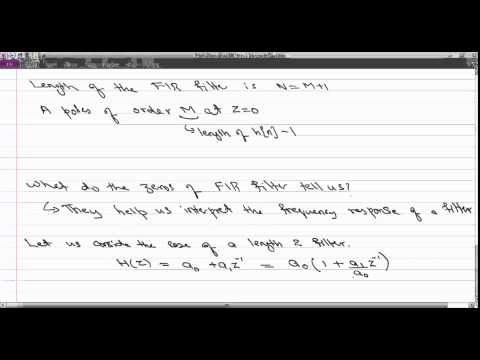 Length of the FIR filter is N=M+1
A poles of order M at z=0
↳ length of h[n]-1
What do the zeros of FIR filter tell us?
↳ They help us interpret the frequency response of a filter
Let us conside the case of a length 2 filter.
H(z) = a₀ + a₁z⁻¹ = a₀(1 + a₁/a₀ z⁻¹)